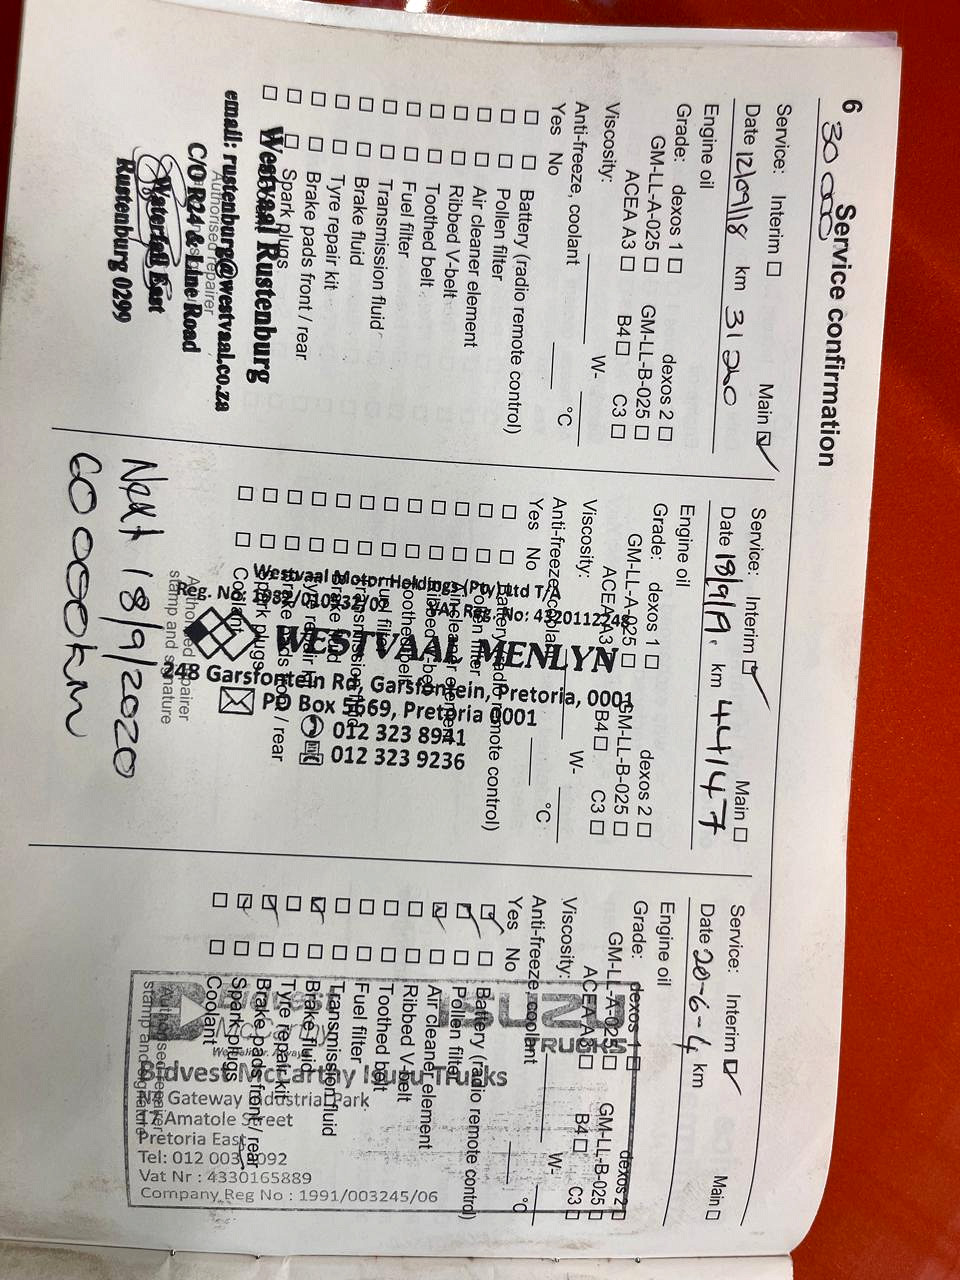 6 Service confirmation
30 000
Service: Interim ☐ Main ☑
Date 12/09/18 km 31240
Engine oil
Grade: dexos 1 ☐ dexos 2 ☐
GM-LL-A-025 ☐ GM-LL-B-025 ☐
ACEA A3 ☐ B4 ☐ C3 ☐
Viscosity: W-
Anti-freeze, coolant °C
Yes No
☐ ☐ Battery (radio remote control)
☐ ☐ Pollen filter
☐ ☐ Air cleaner element
☐ ☐ Ribbed V-belt
☐ ☐ Toothed belt
☐ ☐ Fuel filter
☐ ☐ Transmission fluid
☐ ☐ Brake fluid
☐ ☐ Tyre repair kit
☐ ☐ Brake pads front / rear
☐ ☐ Spark plugs
Westvaal Rustenburg
email: rustenburg@westvaal.co.za
Authorised repairer
C/O R24 & Line Road
Waterfall East
Rustenburg 0299
Service: Interim ☑ Main ☐
Date 18/9/19. km 44147
Engine oil
Grade: dexos 1 ☐ dexos 2 ☐
GM-LL-A-025 ☐ GM-LL-B-025 ☐
ACEA A3 ☐ B4 ☐ C3 ☐
Viscosity: W-
Anti-freeze, coolant °C
Yes No
☐ ☐ Battery (radio remote control)
Westvaal Motor Holdings (Pty) Ltd T/A
VAT Reg. No: 4320112248
WESTVAAL MENLYN
248 Garsfontein Rd, Garsfontein, Pretoria, 0001
PO Box 5669, Pretoria 0001
012 323 8941
012 323 9236
Authorised repairer
stamp and signature
Next 18/9/2020
60 000km
Service: Interim ☑ Main ☐
Date 20-6-4 km
Engine oil
Grade: dexos 1 ☐ dexos 2 ☐
GM-LL-A-025 ☐ GM-LL-B-025 ☐
ACEA A3 ☐ B4 ☐ C3 ☐
Viscosity: W-
Anti-freeze, coolant °C
Yes No
☑ ☐ Battery (radio remote control)
☑ ☐ Pollen filter
☑ ☐ Air cleaner element
☐ ☐ Ribbed V-belt
☐ ☐ Toothed belt
☐ ☐ Fuel filter
☐ ☐ Transmission fluid
☑ ☐ Brake fluid
☐ ☐ Tyre repair kit
☑ ☐ Brake pads front / rear
☑ ☐ Spark plugs
☐ ☐ Coolant
ISUZU
TRUCKS
Bidvest McCarthy Isuzu Trucks
Gateway Industrial Park
17 Amatole Street
Pretoria East
Tel: 012 003
Vat Nr : 4330165889
Company Reg No : 1991/003245/06